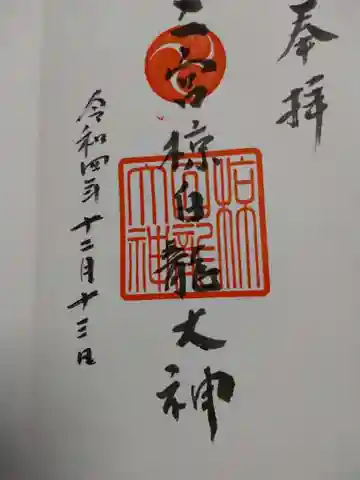 奉拝
二宮椋白龍大神
椋白龍大神
令和四年十二月十三日